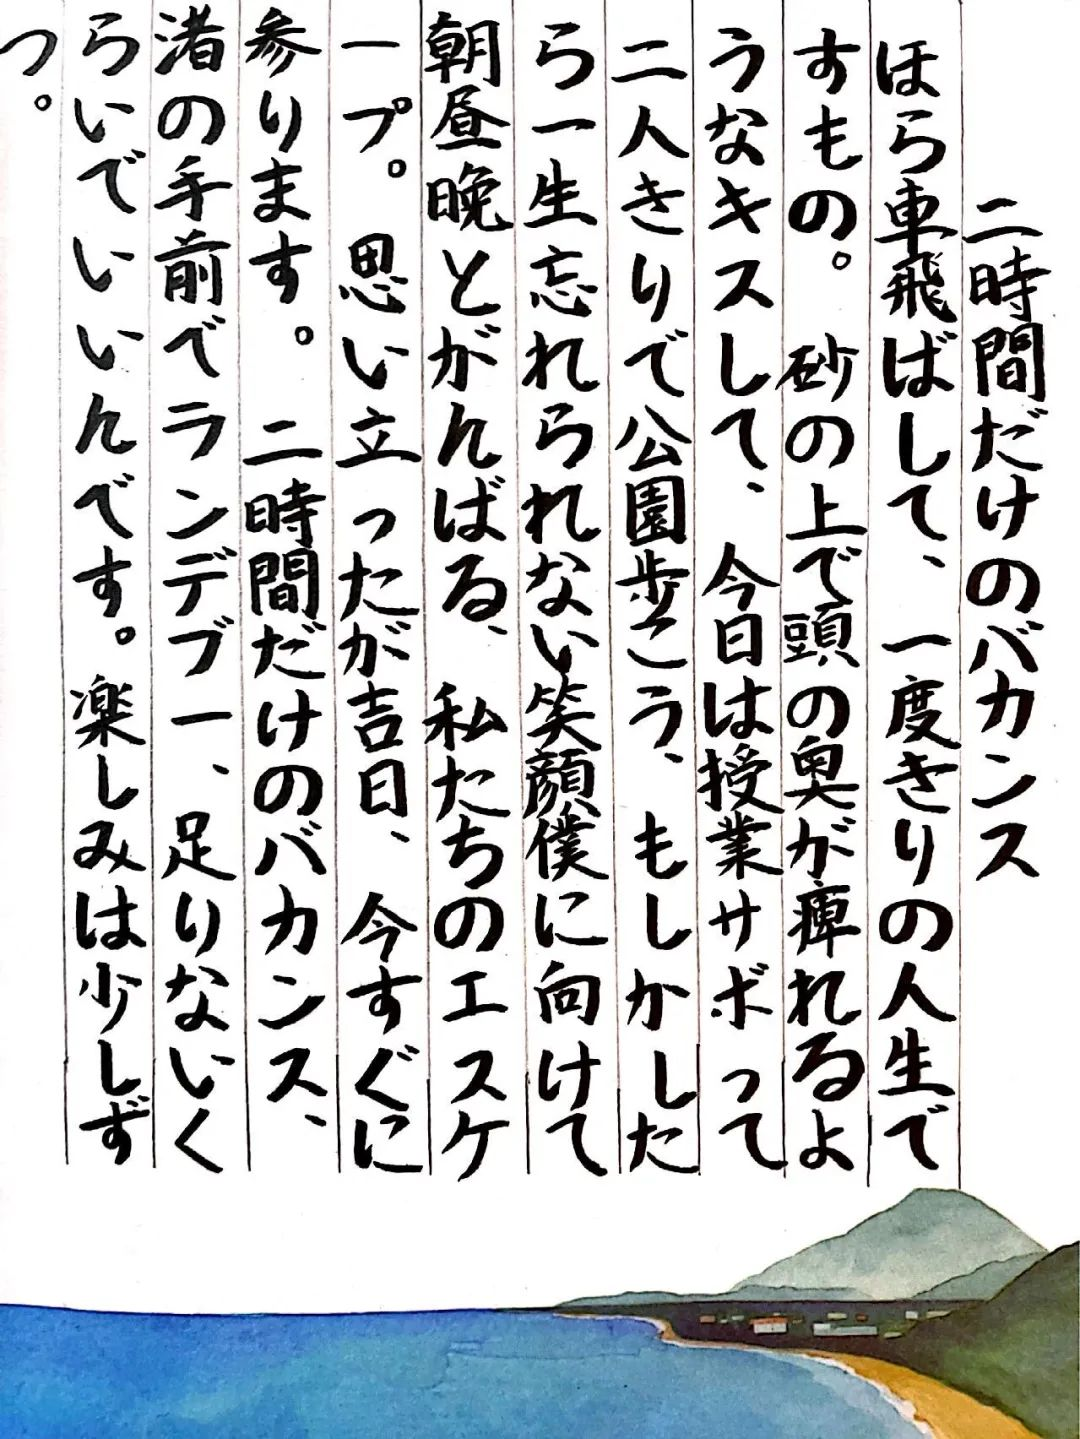 二時間だけのバカンス
ほら車飛ばして、一度きりの人生で
すもの。 砂の上で頭の奥が痺れるよ
うなキスして、 今日は授業サボって
二人きりで公園歩こう、 もしかした
ら一生忘れられない笑顔僕に向けて
朝昼晩とがんばる、 私たちのエスケ
ープ。 思い立ったが吉日、 今すぐに
参ります。 二時間だけのバカンス、
渚の手前でランデブー、足りないく
らいでいいんです。楽しみは少しず
つ。